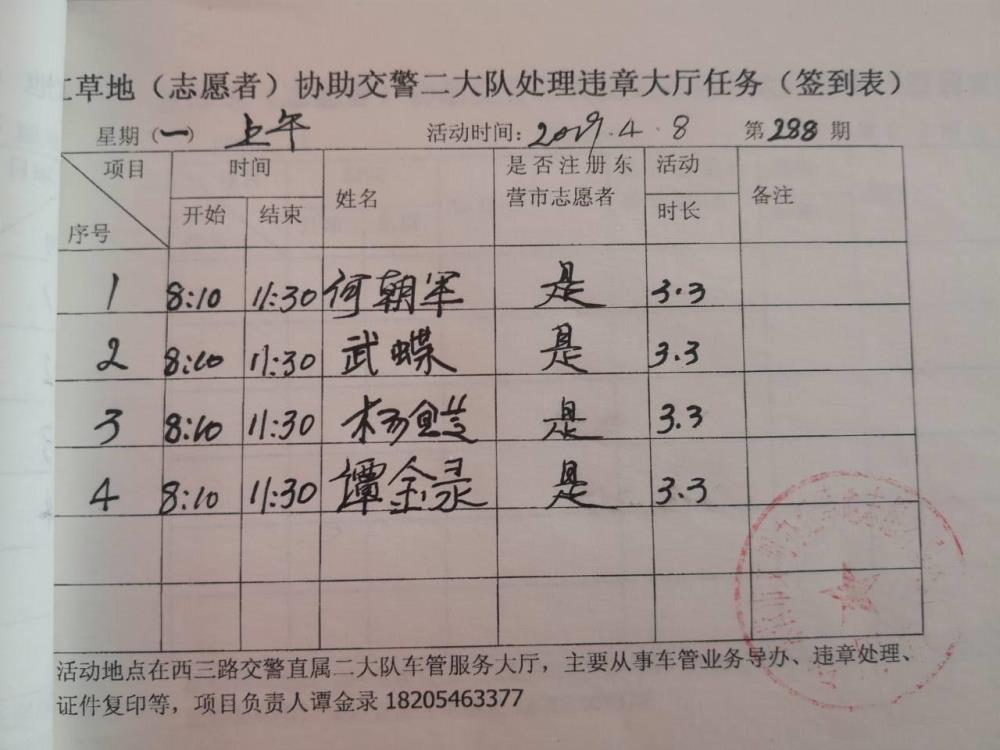 草地（志愿者）协助交警二大队处理违章大厅任务（签到表）
星期（一） 上午 活动时间：2019.4.8 第288期
项目 时间 姓名 是否注册东营市志愿者 活动时长 备注
序号 开始 结束
1 8:10 11:30 何朝军 是 3.3
2 8:10 11:30 武蝶 是 3.3
3 8:10 11:30 杨 是 3.3
4 8:10 11:30 谭金录 是 3.3
活动地点在西三路交警直属二大队车管服务大厅，主要从事车管业务导办、违章处理、
证件复印等，项目负责人谭金录 18205463377